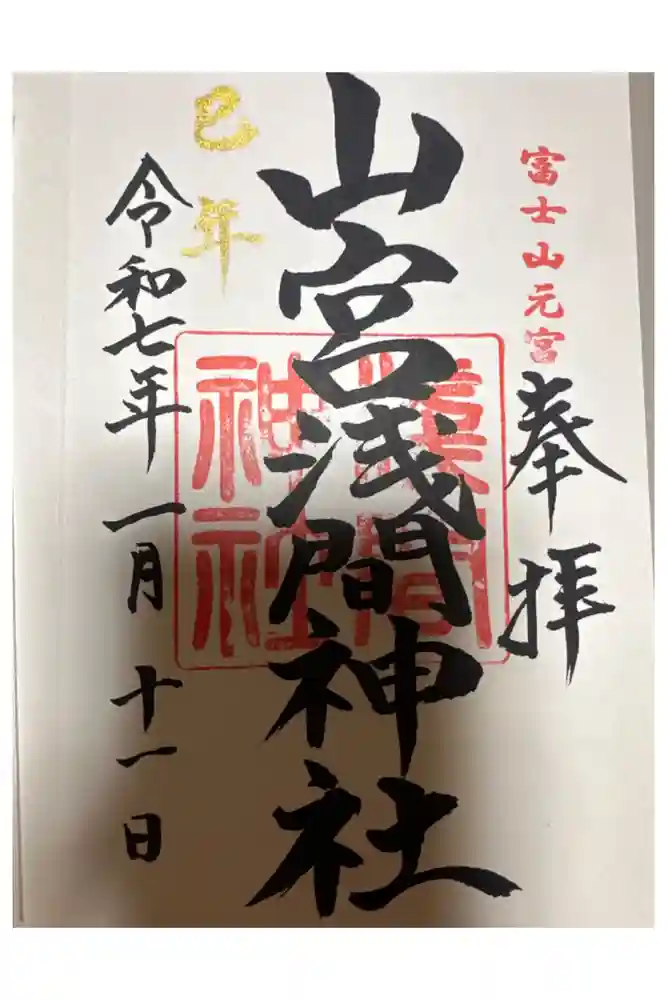 富士山元宮
奉拝
山宮浅間神社
淺間
神社
巳年
令和七年一月十一日